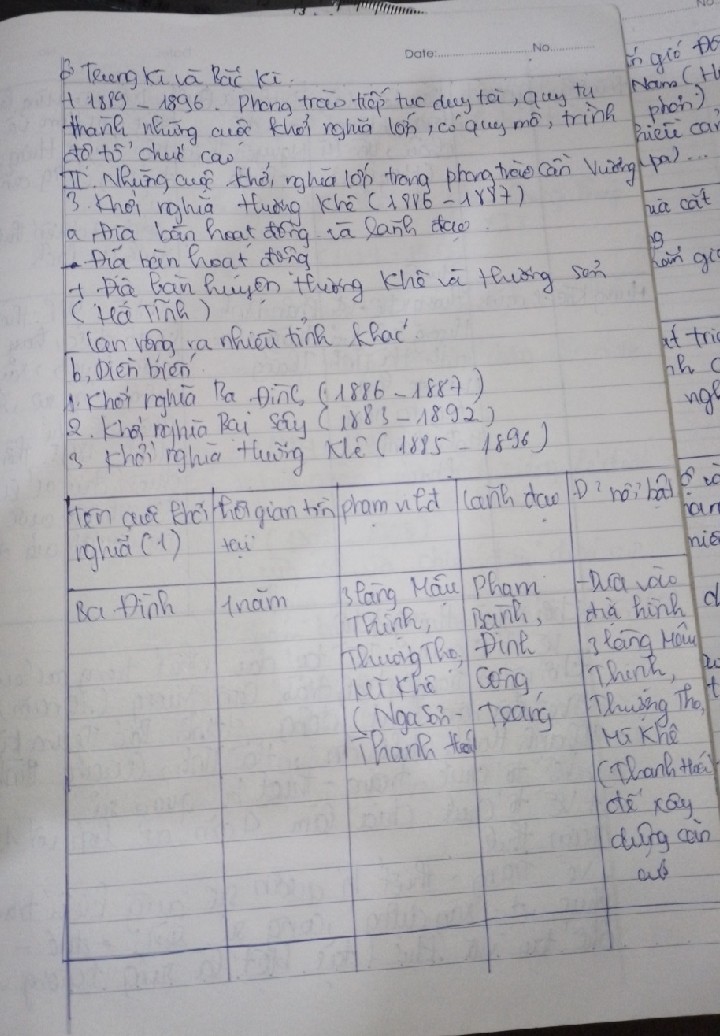 Date: No.
ở Trung Kì và Bắc Kì.
+ 1889 - 1896. Phong trào tiếp tục duy tới, quy tụ
thành những cuộc khởi nghĩa lớn, có quy mô, trình
độ tổ chức cao
II. Những cuộc khởi nghĩa lớn trong phong trào cần Vương
3. Khởi nghĩa Hương Khê (1886 - 1887)
a. Địa bàn hoạt động và lãnh đạo
- Địa bàn hoạt động
+ Địa bàn huyện Hương Khê và Hương Sơn
(Hà Tĩnh)
lan rộng ra nhiều tỉnh khác
b, Diễn biến
1. Khởi nghĩa Ba Đình (1886 - 1887)
2. Khởi nghĩa Bãi Sậy (1883 - 1892)
3 Khởi nghĩa Hương Khê (1885 - 1896)
Tên cuộc khởi nghĩa (1)
thời gian tồn tại
phạm vi hđ
lãnh đạo
Ba Đình
1 năm
3 làng Mậu
Thịnh,
Thượng Thọ,
Mĩ Khê
(Nga Sơn -
Thanh Hoá
Phạm
Bành,
Đinh
Công
Tráng
- Dựa vào
địa hình
3 làng Mậu
Thịnh,
Thượng Thọ,
Mĩ Khê
(Thanh Hoá)
để xây
dựng căn
cứ